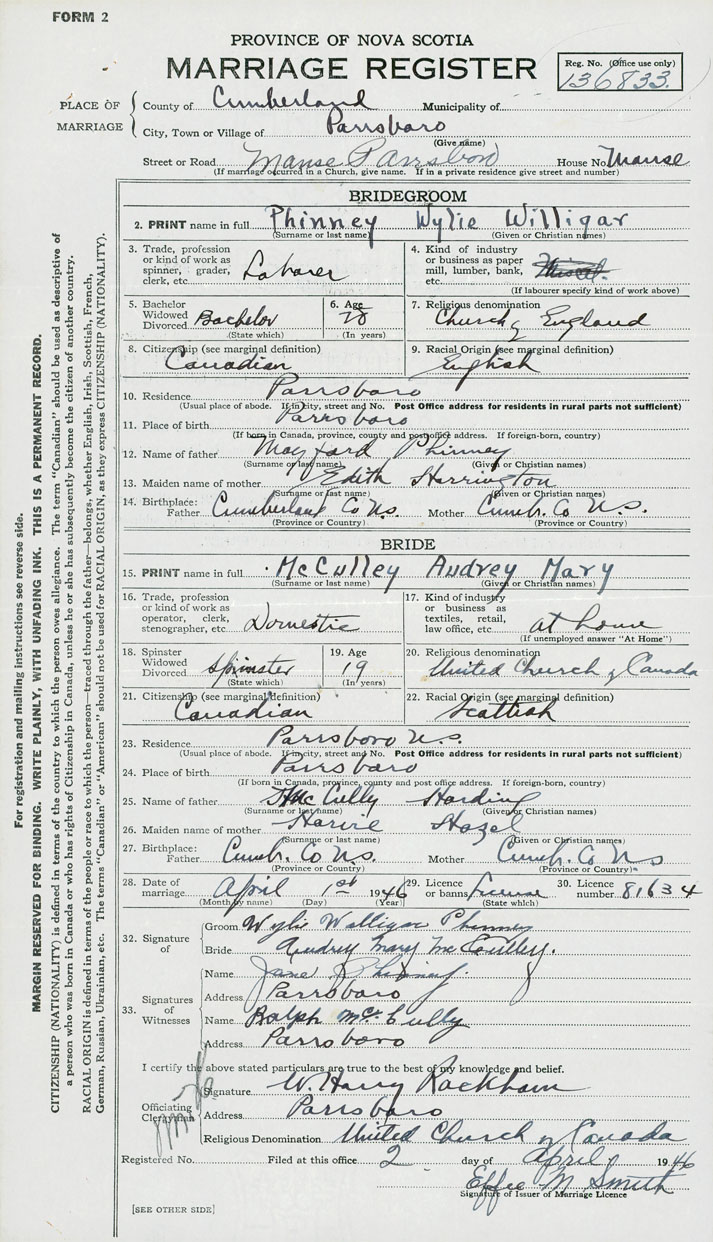 FORM 2
PROVINCE OF NOVA SCOTIA
MARRIAGE REGISTER
Reg. No. (Office use only)
136833.
PLACE OF MARRIAGE
County of Cumberland Municipality of
City, Town or Village of Parrsboro
(Give name)
Street or Road Manse Parrsboro House No. Manse
(If marriage occurred in a Church, give name. If in a private residence give street and number)
BRIDEGROOM
2. PRINT name in full Phinney Wylie Willigar
(Surname or last name) (Given or Christian names)
3. Trade, profession or kind of work as spinner, grader, clerk, etc. Laborer
4. Kind of industry or business as paper mill, lumber, bank, etc.
(If labourer specify kind of work above)
5. Bachelor Widowed Divorced Bachelor
(State which)
6. Age 28
(In years)
7. Religious denomination
Church of England
8. Citizenship (see marginal definition)
Canadian
9. Racial Origin (see marginal definition)
English
10. Residence Parrsboro
(Usual place of abode. If in city, street and No. Post Office address for residents in rural parts not sufficient)
11. Place of birth Parrsboro
(If born in Canada, province, county and postoffice address. If foreign-born, country)
12. Name of father Mayford Phinney
(Surname or last name) (Given or Christian names)
13. Maiden name of mother Edith Harrington
(Surname or last name) (Given or Christian names)
14. Birthplace: Father Cumberland Co N.S. Mother Cumb. Co N.S.
(Province or Country) (Province or Country)
BRIDE
15. PRINT name in full McCulley Audrey Mary
(Surname or last name) (Given or Christian names)
16. Trade, profession or kind of work as operator, clerk, stenographer, etc. Domestic
17. Kind of industry or business as textiles, retail, law office, etc. at home
(If unemployed answer "At Home")
18. Spinster Widowed Divorced Spinster
(State which)
19. Age 19
(In years)
20. Religious denomination
United Church of Canada
21. Citizenship (see marginal definition)
Canadian
22. Racial Origin (see marginal definition)
Scottish
23. Residence Parrsboro N.S.
(Usual place of abode. If in city, street and No. Post Office address for residents in rural parts not sufficient)
24. Place of birth Parrsboro
(If born in Canada, province, county and post office address. If foreign-born, country)
25. Name of father McCully Harding
(Surname or last name) (Given or Christian names)
26. Maiden name of mother Harvie Hazel
(Surname or last name) (Given or Christian names)
27. Birthplace: Father Cumb. Co N.S. Mother Cumb. Co N.S
(Province or Country) (Province or Country)
28. Date of marriage April 1st 1946
(Month by name) (Day) (Year)
29. Licence or banns License
(State which)
30. Licence number 81634
32. Signature of
Groom Wylie Willigar Phinney
Bride Audrey Mary McCulley.
33. Signatures of Witnesses
Name Jane Phinney.
Address Parrsboro
Name Ralph McCully
Address Parrsboro
I certify the above stated particulars are true to the best of my knowledge and belief.
Officiating Clergyman
Signature W. Harry Rackham
Address Parrsboro
Religious Denomination United Church of Canada
Registered No. Filed at this office 2 day of April 1946
Effie M Smith
Signature of Issuer of Marriage Licence
[SEE OTHER SIDE]
For registration and mailing instructions see reverse side.
MARGIN RESERVED FOR BINDING. WRITE PLAINLY, WITH UNFADING INK. THIS IS A PERMANENT RECORD.
CITIZENSHIP (NATIONALITY) is defined in terms of the country to which the person owes allegiance. The term "Canadian" should be used as descriptive of
a person who was born in Canada or who has rights of Citizenship in Canada, unless he or she has subsequently become the citizen of another country.
RACIAL ORIGIN is defined in terms of the people or race to which the person—traced through the father—belongs, whether English, Irish, Scottish, French,
German, Russian, Ukrainian, etc. The terms "Canadian" or "American" should not be used for RACIAL ORIGIN, as they express CITIZENSHIP (NATIONALITY).